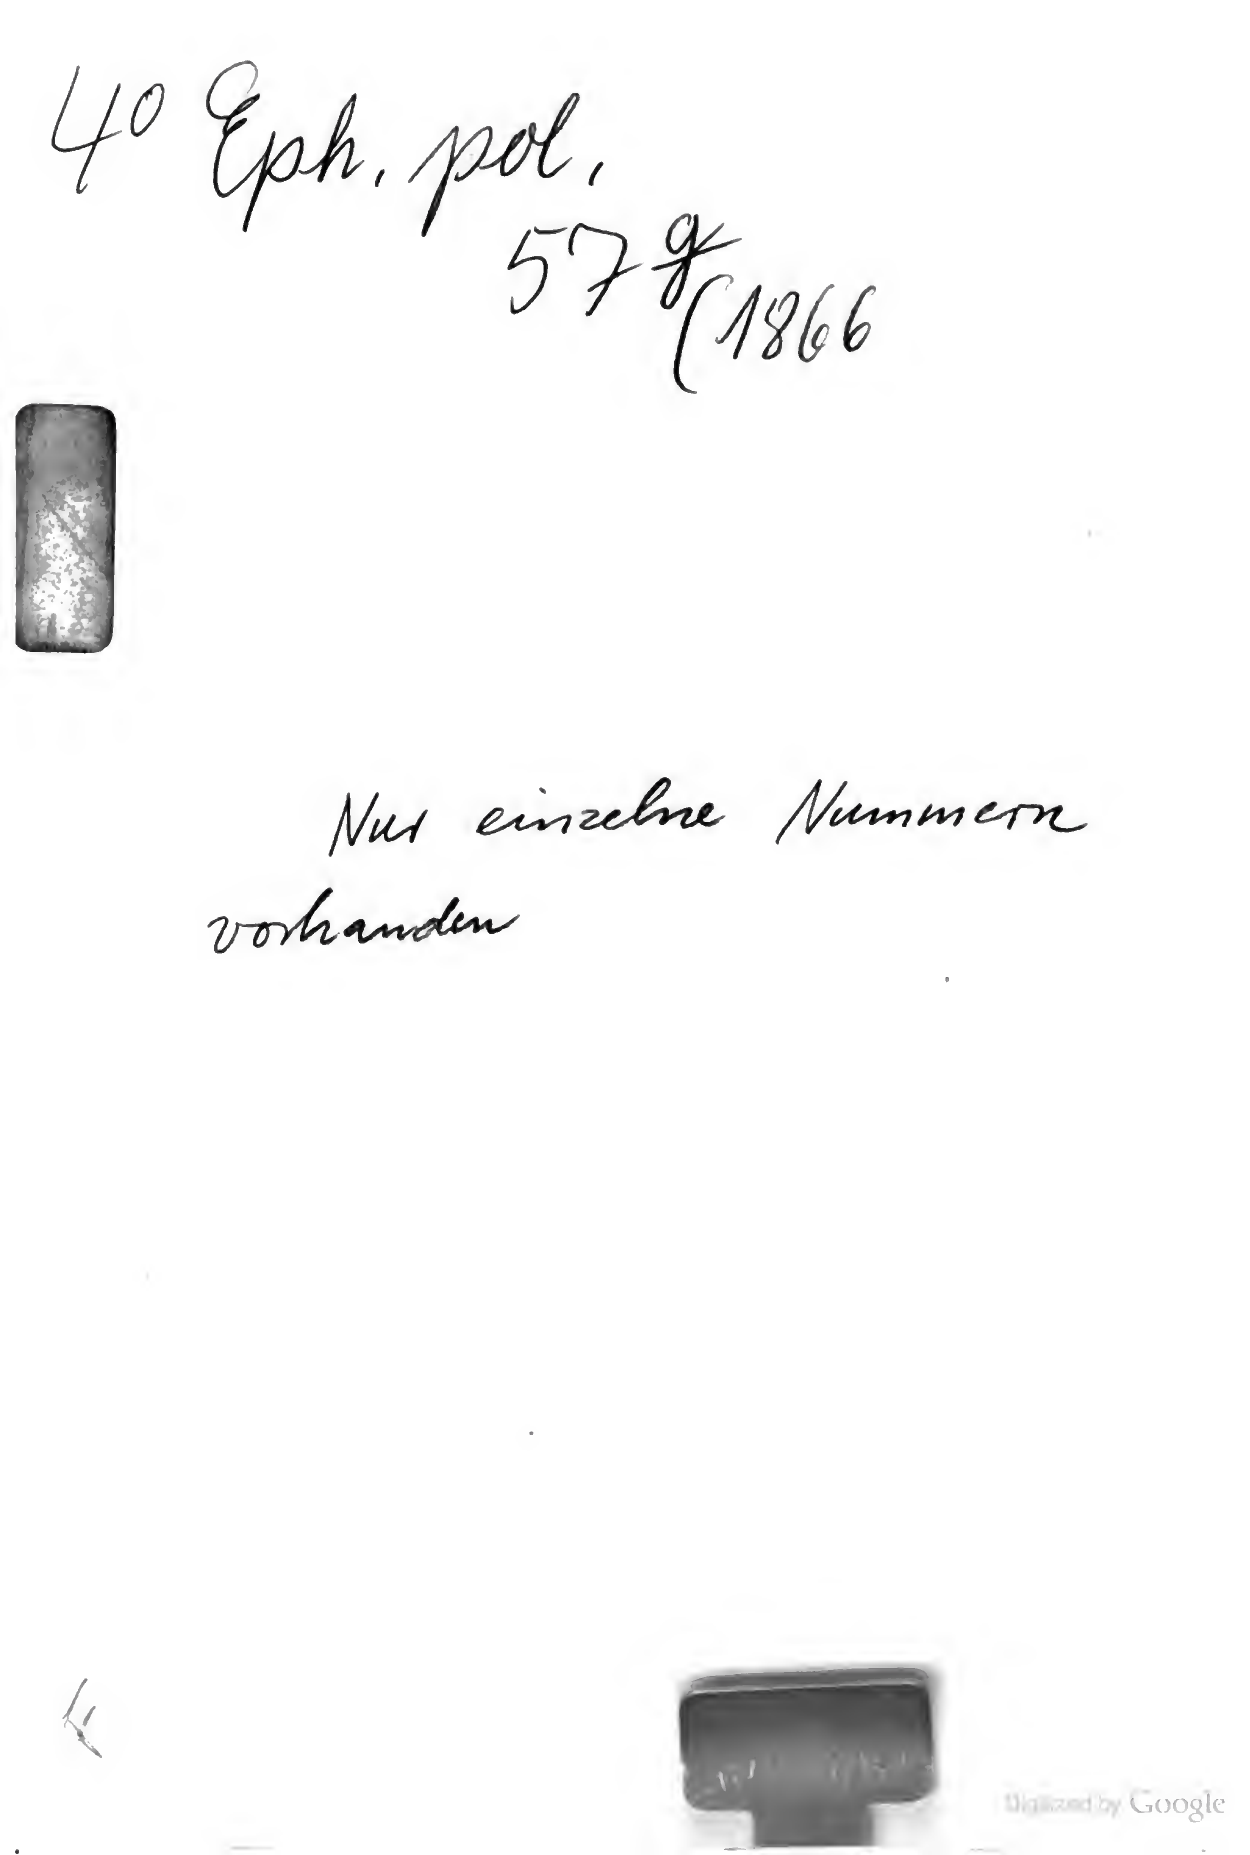 4° Eph. pol.
57 g
(1866
Nur einzelne Nummern
vorhanden
Digitized by Google